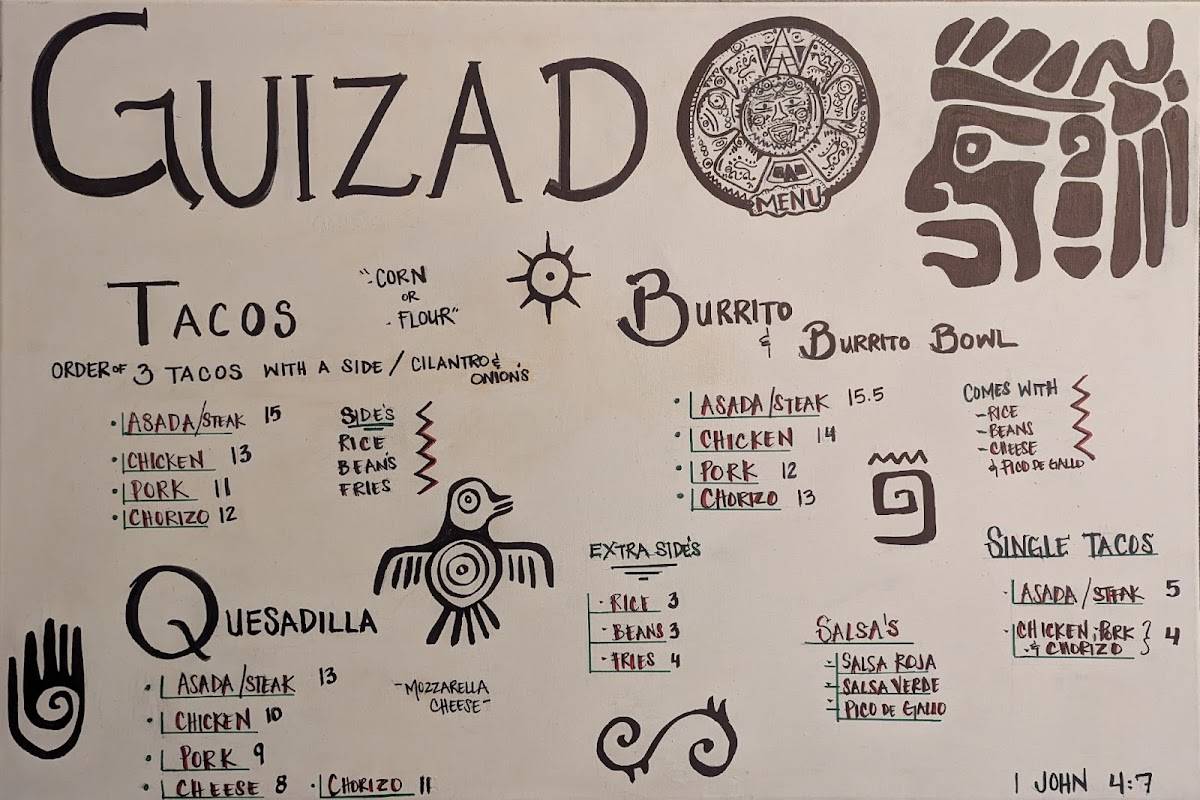 GUIZADO
MENU
TACOS
"-CORN
OR
-FLOUR"
ORDER OF 3 TACOS WITH A SIDE / CILANTRO &
ONION'S
·ASADA/STEAK 15
·CHICKEN 13
·PORK 11
·CHORIZO 12
SIDE'S
RICE
BEAN'S
FRIES
BURRITO
& BURRITO BOWL
·ASADA/STEAK 15.5
·CHICKEN 14
·PORK 12
·CHORIZO 13
COMES WITH
-RICE
-BEANS
-CHEESE
& PICO DE GALLO
QUESADILLA
·ASADA/STEAK 13
·CHICKEN 10
·PORK 9
·CHEESE 8 ·CHORIZO 11
-MOZZARELLA
CHEESE-
EXTRA SIDE'S
·RICE 3
·BEANS 3
·FRIES 4
SALSA'S
-SALSA ROJA
-SALSA VERDE
-PICO DE GALLO
SINGLE TACOS
·ASADA/STEAK 5
·CHICKEN, PORK
& CHORIZO } 4
1 JOHN 4:7